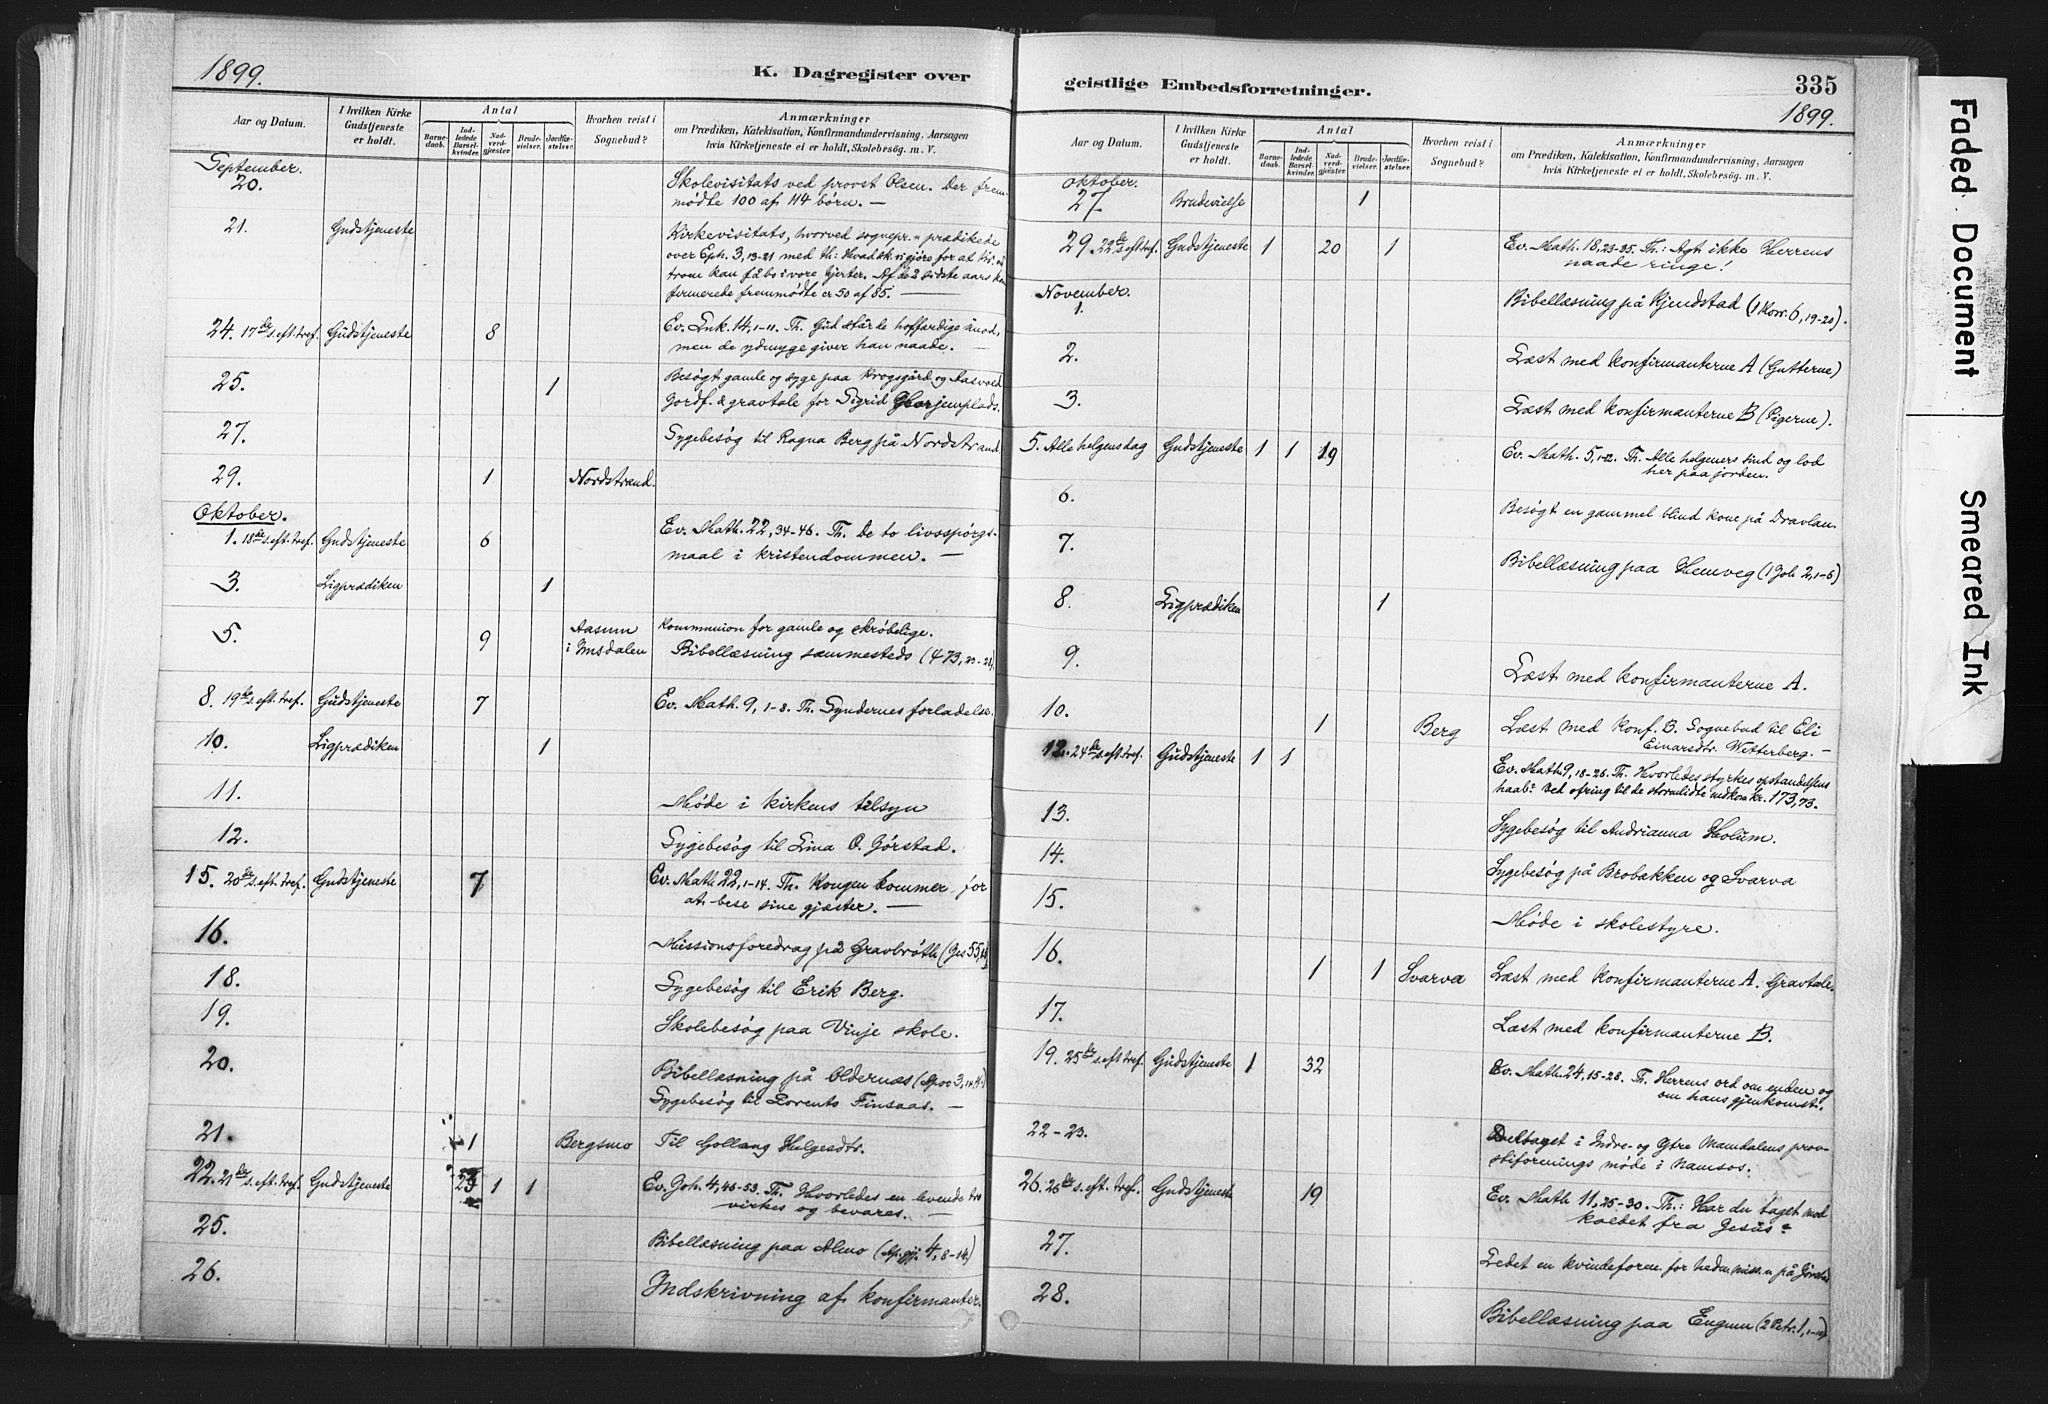 1899.
K. Dagregister over
Aar og Datum.
I hvilken Kirke Gudstjeneste er holdt.
Antal
Barnedaab.
Indledede Barselkvinder.
Nadverdgjæster.
Brudevielser.
Jordfæstelser.
Hvorhen reist i Sognebud?
Anmærkninger
om Prædiken, Katekisation, Konfirmandundervisning, Aarsagen
hvis Kirketjeneste ei er holdt, Skolebesøg. m. V.
September.
20. Skolevisitats ved provst Olsen. Der frem-
mødte 100 af 114 børn. —
21. Gudstjeneste Kirkevisitats, hvorved sognepr. prædikede
over Eph. 3,13-21 med Th: Hvad sk. vi gjøre for at
troen kan få bo i vore hjerter. Af de 2 sidste aars kon
firmerede fremmødte er 50 af 85. —
24. 17de s. eft. tref. Gudstjeneste 8 Ev. Luk. 14,1-11. Th. Gud står de hoffærdige imod,
men de ydmyge giver han naade. —
25. 1 Besøgt gamle og syge paa Krogsgård og Aasvold
Jordf. & gravtale for Sigrid
27. Sygebesøg til Ragna Berg på Nordstrand
29. 1 Nordstrand.
Oktober.
1. 18de s. eft. tref. Gudstjeneste 6 Ev. Math. 22,34-46. Th. De to livsspørgs-
maal i kristendommen. —
3. Ligprædiken 1
5. 9 Aasum Kommunion for gamle og skrøbelige.
i Imsdalen Bibellæsning sammesteds (
8. 19de s. eft. tref. Gudstjeneste 7 Ev. Math. 9, 1-8. Th. Syndernes forladelse.
10. Ligprædiken 1
11. Møde i kirkens tilsyn
12. Sygebesøg til Lina O. Gørstad.
15. 20de s. eft. tref. Gudstjeneste 7 Ev. Math 22,1-14. Th. Kongen kommer for
at bese sine gjæster. —
16. Missionsforedrag på
18. Sygebesøg til Erik Berg.
19. Skolebesøg paa Vinje skole.
20. Bibellæsning på Oldernæs
Sygebesøg til Lorents Finsaas. —
21. 1 Bergsmo Til Gollaug Helgesdtr.
22. 21de s. eft. tref. Gudstjeneste 1 1 Ev. Joh. 4,46-53. Th. Hvorledes en levende tro
virkes og bevares. —
25. Bibellæsning paa Almo (Ap.gj. 4, 8-14)
26. Indskrivning af konfirmanter.
geistlige Embedsforretninger.
335
1899.
Aar og Datum.
I hvilken Kirke Gudstjeneste er holdt.
Antal
Barnedaab.
Indledede Barselkvinder.
Nadverdgjæster.
Brudevielser.
Jordfæstelser.
Hvorhen reist i Sognebud?
Anmærkninger
om Prædiken, Katekisation, Konfirmandundervisning, Aarsagen
hvis Kirketjeneste ei er holdt, Skolebesøg. m. V.
Oktober.
27. Brudevielse 1
29. 22de s. eft. tref. Gudstjeneste 1 20 1 Ev. Math. 18,23-35. Th: Agt ikke Herrens
naade ringe!
November.
1. Bibellæsning på Kjendstad (1 Kor. 6, 19-20).
2. Læst med konfirmanterne A (Gutterne)
3. Læst med konfirmanterne B (Pigerne).
5. Alle helgensdag Gudstjeneste 1 1 19 Ev. Math. 5,1-12. Th. Alle helgeners sind og lod
her paa jorden.
6. Besøgt en gammel blind kone på Dravlan.
7. Bibellæsning paa Hemveg (1 Joh 2,1-6)
8. Ligprædiken 1
9. Læst med konfirmanterne A.
10. 1 Berg Læst med konf. B. Sognebud til Eli
Einarsdtr. Wetterberg. —
12. 24de s. eft. tref. Gudstjeneste 1 1 Ev. Math 9, 18-26. Th. Hvorledes styrkes opstandelsens
haab? Ved ofring til de stormlidte indkom kr. 173,73.
13. Sygebesøg til Andrianna Holum.
14. Sygebesøg på Brobakken og Svarva
15. Møde i skolestyre.
16. 1 1 Svarva Læst med konfirmanterne A. Gravtale.
17. Læst med konfirmanterne B.
19. 25de s. eft tref. Gudstjeneste 1 32 Ev. Math. 24,15-28. Th. Herrens ord om enden og
om hans gjenkomst.
22-23. Deltaget i Indre- og Ytre Namdalens prov-
stiforenings møde i Namsos.
26. 26de s. eft. tref. Gudstjeneste 19 Ev. Math 11,25-30. Th.: Har du taget mod
kaldet fra Jesus?
27. Ledet en kvindeforen. for hedn. miss.n på
28. Bibellæsning paa Engum (2 Petr. 1, 1-10)
Faded Document
Smeared Ink